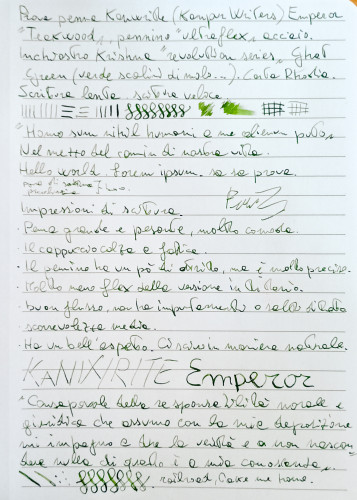 Prova penna Kanwrite (Kanpur Writers) Emperor
"Teakwood", pennino "ultraflex" acciaio.
Inchiostro Krishna "revolution series" Ghat
Green (verde scalini di molo...). Carta Rhodia.
Scrittura lenta, scrittura veloce.
"Homo sum nihil humani a me alienum puto".
Nel mezzo del camin di nostra vita.
Hello world. Lorem ipsum. sa sa prova.
prova di scrittura
Impressioni di scrittura.
- Penna grande e pesante, molto comoda.
- Il cappuccio calza a fatica.
- Il pennino ha un pò di attrito, ma è molto preciso.
- Molto meno flex della versione in titanio.
- buon flusso, non ha impuntamenti o salti di tratto
scorrevolezza media.
- Ha un bell'aspetto. Ci scrivi in maniera naturale.
KANWRITE Emperor
"Consapevole della responsabilità morale e
giuridica che assumo con la mia deposizione
mi impegno a dire la verità e a non nascon
dere nulla di quanto è a mia conoscenza
railroad, take me home.